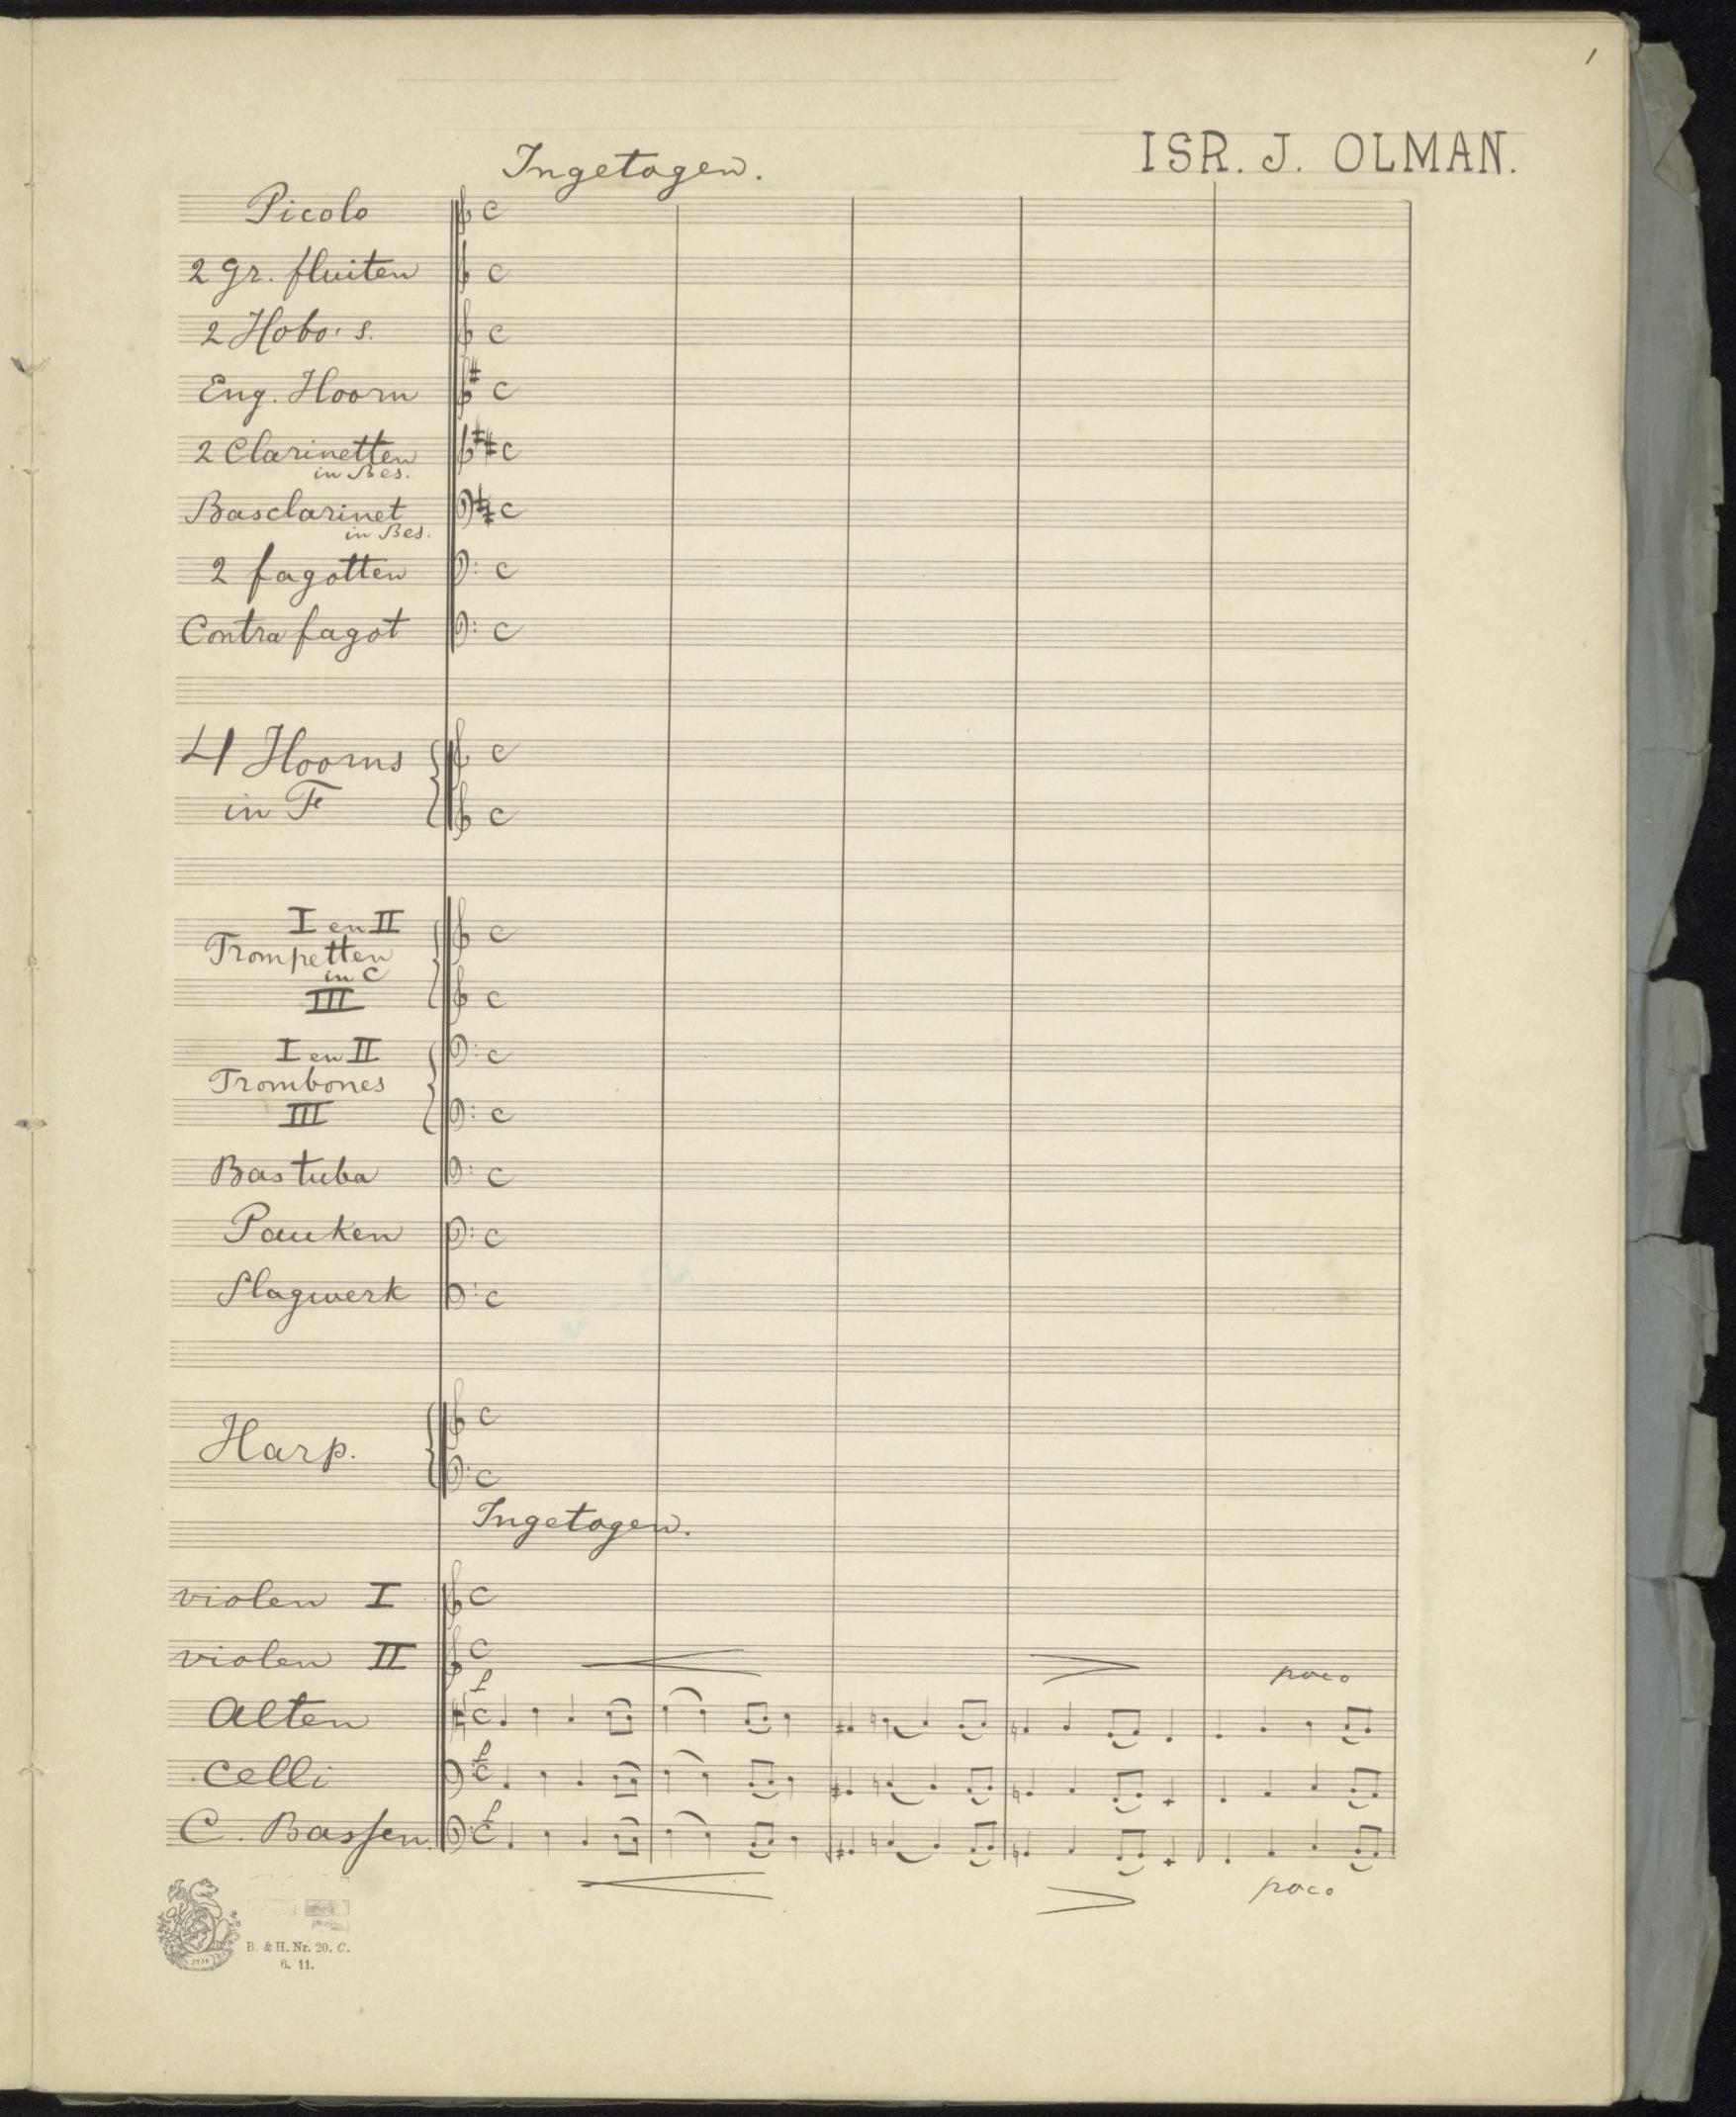 1
ISR. J. OLMAN.
Ingetogen.
Picolo
2 gr. fluiten
2 Hobo's.
Eng. Hoorn
2 Clarinetten
in Bes.
Basclarinet
in Bes.
2 fagotten
Contra fagot
4 Hoorns
in F
I en II
Trompetten
in C
III
I en II
Trombones
III
Bas tuba
Pauken
Slagwerk
Harp.
Ingetogen.
violen I
violen II
poco
f
Alten
f
Celli
f
C. Bassen
poco
B. & H. Nr. 20. C.
6. 11.